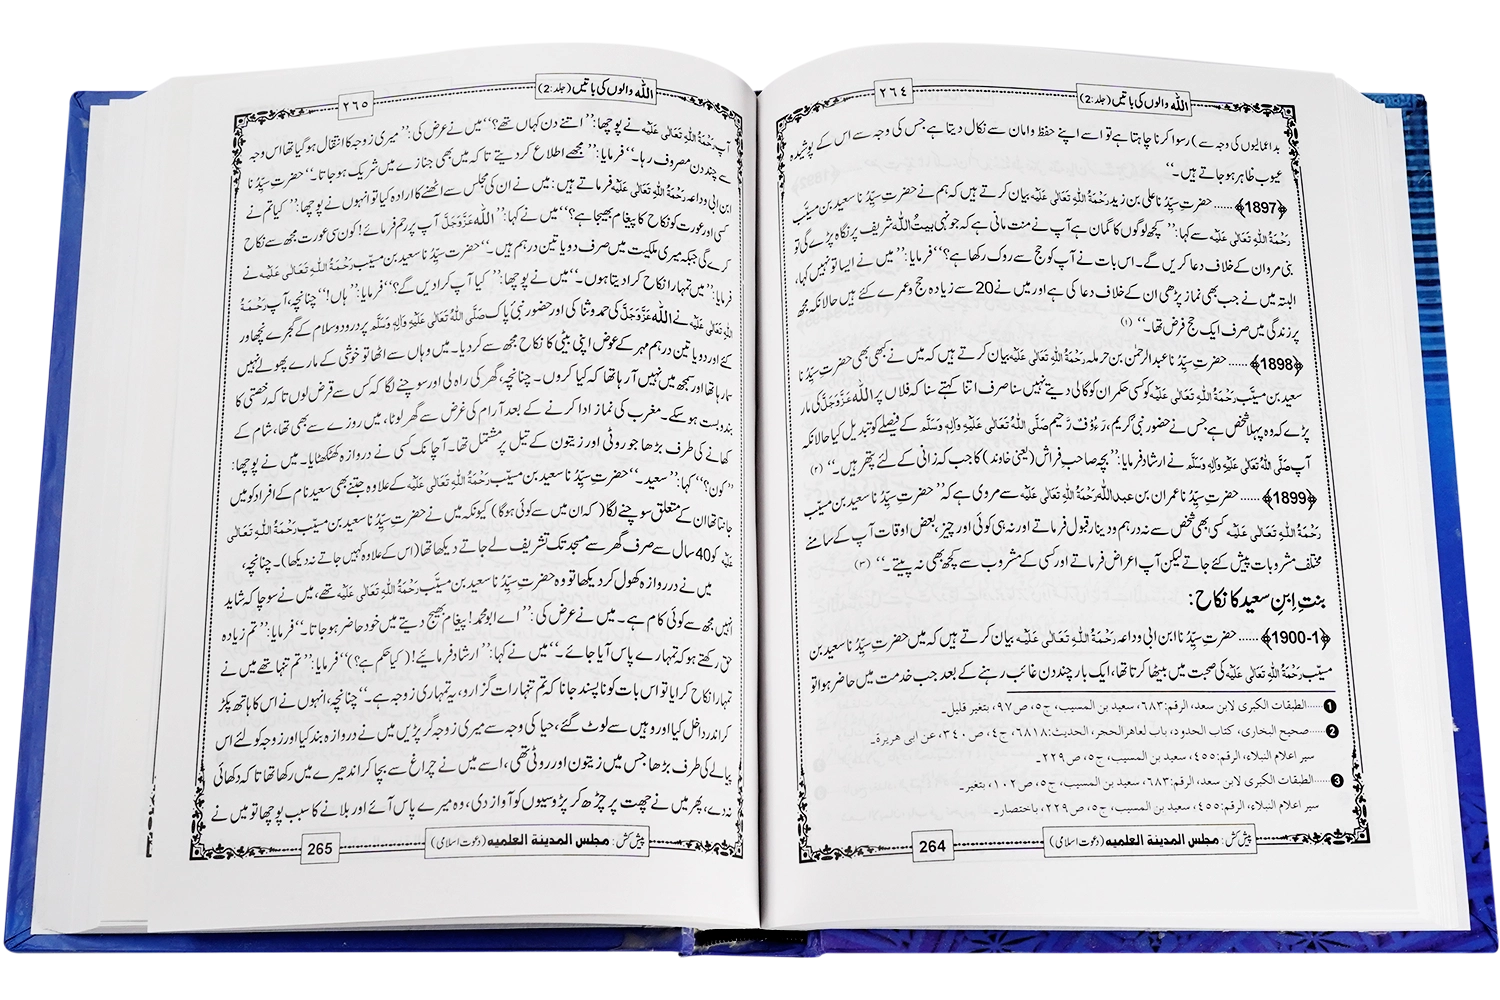 اللہ والوں کی باتیں (جلد:2)
٢٦٤
بداعمالیوں کی وجہ سے) رسوا کرنا چاہتا ہے تو اسے اپنے حفظ وامان سے نکال دیتا ہے جس کی وجہ سے اس کے پوشیدہ
عیوب ظاہر ہوجاتے ہیں۔‘‘
﴿1897﴾...... حضرتِ سیِّدُنا علی بن زید رَحْمَۃُ اللہِ تَعَالٰی عَلَیْہ بیان کرتے ہیں کہ ہم نے حضرتِ سیِّدُنا سعید بن مسیَّب
رَحْمَۃُ اللہِ تَعَالٰی عَلَیْہ سے کہا: ’’کچھ لوگوں کا گمان ہے آپ نے منت مانی ہے کہ جونہی بیتُ اللہ شریف پر نگاہ پڑے گی تو
بنی مروان کے خلاف دعا کریں گے۔ اس بات نے آپ کو حج سے روک رکھا ہے؟‘‘ فرمایا: ’’میں نے ایسا تو نہیں کہا،
البتہ میں نے جب بھی نماز پڑھی ان کے خلاف دعا کی ہے اور میں نے 20 سے زیادہ حج وعمرے کئے ہیں حالانکہ مجھ
پر زندگی میں صرف ایک حج فرض تھا۔‘‘ (١)
﴿1898﴾...... حضرتِ سیِّدُنا عبدالرحمٰن بن حرملہ رَحْمَۃُ اللہِ تَعَالٰی عَلَیْہ بیان کرتے ہیں کہ میں نے کبھی بھی حضرتِ سیِّدُنا
سعید بن مسیَّب رَحْمَۃُ اللہِ تَعَالٰی عَلَیْہ کو کسی حکمران کو گالی دیتے نہیں سنا صرف اتنا کہتے سنا کہ فلاں پر اللہ عَزَّوَجَلَّ کی مار
پڑے کہ وہ پہلا شخص ہے جس نے حضور نبیٔ کریم، رَءُوْفٌ رَّحِیم صَلَّی اللہُ تَعَالٰی عَلَیْہِ وَاٰلِہٖ وَسَلَّم کے فیصلے کو تبدیل کیا حالانکہ
آپ صَلَّی اللہُ تَعَالٰی عَلَیْہِ وَاٰلِہٖ وَسَلَّم نے ارشاد فرمایا: ’’بچہ صاحبِ فِراش (یعنی خاوند) کا جب کہ زانی کے لئے پتھر ہیں۔‘‘ (٢)
﴿1899﴾...... حضرتِ سیِّدُنا عمران بن عبداللہ رَحْمَۃُ اللہِ تَعَالٰی عَلَیْہ سے مروی ہے کہ ’’حضرتِ سیِّدُنا سعید بن مسیب
رَحْمَۃُ اللہِ تَعَالٰی عَلَیْہ کسی بھی شخص سے نہ درہم ودینار قبول فرماتے اور نہ ہی کوئی اور چیز، بعض اوقات آپ کے سامنے
مختلف مشروبات پیش کئے جاتے لیکن آپ اعراض فرماتے اور کسی کے مشروب سے کچھ بھی نہ پیتے۔‘‘ (٣)
بنتِ اِبنِ سعید کا نکاح:
﴿1900-1﴾...... حضرتِ سیِّدُنا ابن ابی وداعہ رَحْمَۃُ اللہِ تَعَالٰی عَلَیْہ بیان کرتے ہیں کہ میں حضرتِ سیِّدُنا سعید بن
مسیّب رَحْمَۃُ اللہِ تَعَالٰی عَلَیْہ کی صحبت میں بیٹھا کرتا تھا، ایک بار چند دن غائب رہنے کے بعد جب خدمت میں حاضر ہوا تو
1......الطبقات الکبری لابن سعد، الرقم:٦٨٣، سعید بن المسیب، ج٥، ص٩٧، بتغیر قلیل۔
2......صحیح البخاری، کتاب الحدود، باب للعاھر الحجر، الحدیث:٦٨١٨، ج٤، ص٣٤٠، عن ابی ھریرۃ۔
سیر اعلام النبلاء، الرقم:٤٥٥، سعید بن المسیب، ج٥، ص٢٢٩۔
3......الطبقات الکبری لابن سعد، الرقم:٦٨٣، سعید بن المسیب، ج٥، ص١٠٢، بتغیر۔
سیر اعلام النبلاء، الرقم:٤٥٥، سعید بن المسیب، ج٥، ص٢٢٩، باختصار۔
پیش کش: مجلس المدینۃ العلمیہ (دعوت اسلامی)
264
اللہ والوں کی باتیں (جلد:2)
٢٦٥
آپ رَحْمَۃُ اللہِ تَعَالٰی عَلَیْہ نے پوچھا: ’’اتنے دن کہاں تھے؟‘‘ میں نے عرض کی: ’’میری زوجہ کا انتقال ہوگیا تھا اس وجہ
سے چند دن مصروف رہا۔‘‘ فرمایا: ’’مجھے اطلاع کردیتے تاکہ میں بھی جنازے میں شریک ہوجاتا۔‘‘ حضرتِ سیِّدُنا
ابن ابی وداعہ رَحْمَۃُ اللہِ تَعَالٰی عَلَیْہ فرماتے ہیں: میں نے ان کی مجلس سے اٹھنے کا ارادہ کیا تو انہوں نے پوچھا: ’’کیا تم نے
کسی اور عورت کو نکاح کا پیغام بھیجا ہے؟‘‘ میں نے کہا: ’’اللہ عَزَّوَجَلَّ آپ پر رحم فرمائے! کون سی عورت مجھ سے نکاح
کرے گی جبکہ میری ملکیت میں صرف دو یا تین درہم ہیں۔‘‘ حضرتِ سیِّدُنا سعید بن مسیّب رَحْمَۃُ اللہِ تَعَالٰی عَلَیْہ نے
فرمایا: ’’میں تمہارا نکاح کرا دیتا ہوں۔‘‘ میں نے پوچھا: ’’کیا آپ کرادیں گے؟‘‘ فرمایا: ’’ہاں!‘‘ چنانچہ، آپ رَحْمَۃُ
اللہِ تَعَالٰی عَلَیْہ نے اللہ عَزَّوَجَلَّ کی حمد وثنا کی اور حضور نبیٔ پاک صَلَّی اللہُ تَعَالٰی عَلَیْہِ وَاٰلِہٖ وَسَلَّم پر درود وسلام کے گجرے نچھاور
کئے اور دو یا تین درہم مہر کے عوض اپنی بیٹی کا نکاح مجھ سے کردیا۔ میں وہاں سے اٹھا تو خوشی کے مارے پھولے نہیں
سما رہا تھا اور سمجھ میں نہیں آرہا تھا کہ کیا کروں۔ چنانچہ، گھر کی راہ لی اور سوچنے لگا کہ کس سے قرض لوں تاکہ رخصتی کا
بندوبست ہوسکے۔ مغرب کی نماز ادا کرنے کے بعد آرام کی غرض سے گھر لوٹا، میں روزے سے بھی تھا، شام کے
کھانے کی طرف بڑھا جو روٹی اور زیتون کے تیل پر مشتمل تھا۔ اچانک کسی نے دروازہ کھٹکھٹایا۔ میں نے پوچھا:
’’کون؟‘‘ کہا: ’’سعید۔‘‘ حضرتِ سیِّدُنا سعید بن مسیّب رَحْمَۃُ اللہِ تَعَالٰی عَلَیْہ کے علاوہ جتنے بھی سعید نام کے افراد کو میں
جانتا تھا ان کے متعلق سوچنے لگا (کہ ان میں سے کوئی ہوگا) کیونکہ میں نے حضرتِ سیِّدُنا سعید بن مسیّب رَحْمَۃُ اللہِ تَعَالٰی
عَلَیْہ کو 40 سال سے صرف گھر سے مسجد تک تشریف لے جاتے دیکھا تھا (اس کے علاوہ کہیں جاتے نہ دیکھا)۔ چنانچہ،
میں نے دروازہ کھول کر دیکھا تو وہ حضرتِ سیِّدُنا سعید بن مسیَّب رَحْمَۃُ اللہِ تَعَالٰی عَلَیْہ تھے، میں نے سوچا کہ شاید
انہیں مجھ سے کوئی کام ہے۔ میں نے عرض کی: ’’اے ابو محمد! پیغام بھیج دیتے میں خود حاضر ہوجاتا۔‘‘ فرمایا: ’’تم زیادہ
حق رکھتے ہو کہ تمہارے پاس آیا جائے۔‘‘ میں نے کہا: ’’ارشاد فرمائیے! (کیا حکم ہے؟)‘‘ فرمایا: ’’تم تنہا تھے میں نے
تمہارا نکاح کرایا تو اس بات کو ناپسند جانا کہ تم تنہا رات گزارو، یہ تمہاری زوجہ ہے۔‘‘ چنانچہ، انہوں نے اس کا ہاتھ پکڑ
کر اندر داخل کیا اور وہیں سے لوٹ گئے، حیا کی وجہ سے میری زوجہ گر پڑیں میں نے دروازہ بند کیا اور زوجہ کو لئے اس
پیالے کی طرف بڑھا جس میں زیتون اور روٹی تھی، اسے میں نے چراغ سے بچا کر اندھیرے میں رکھا تھا تاکہ دکھائی
نہ دے، پھر میں نے چھت پر چڑھ کر پڑوسیوں کو آواز دی، وہ میرے پاس آئے اور بلانے کا سبب پوچھا تو میں نے
پیش کش: مجلس المدینۃ العلمیہ (دعوت اسلامی)
265